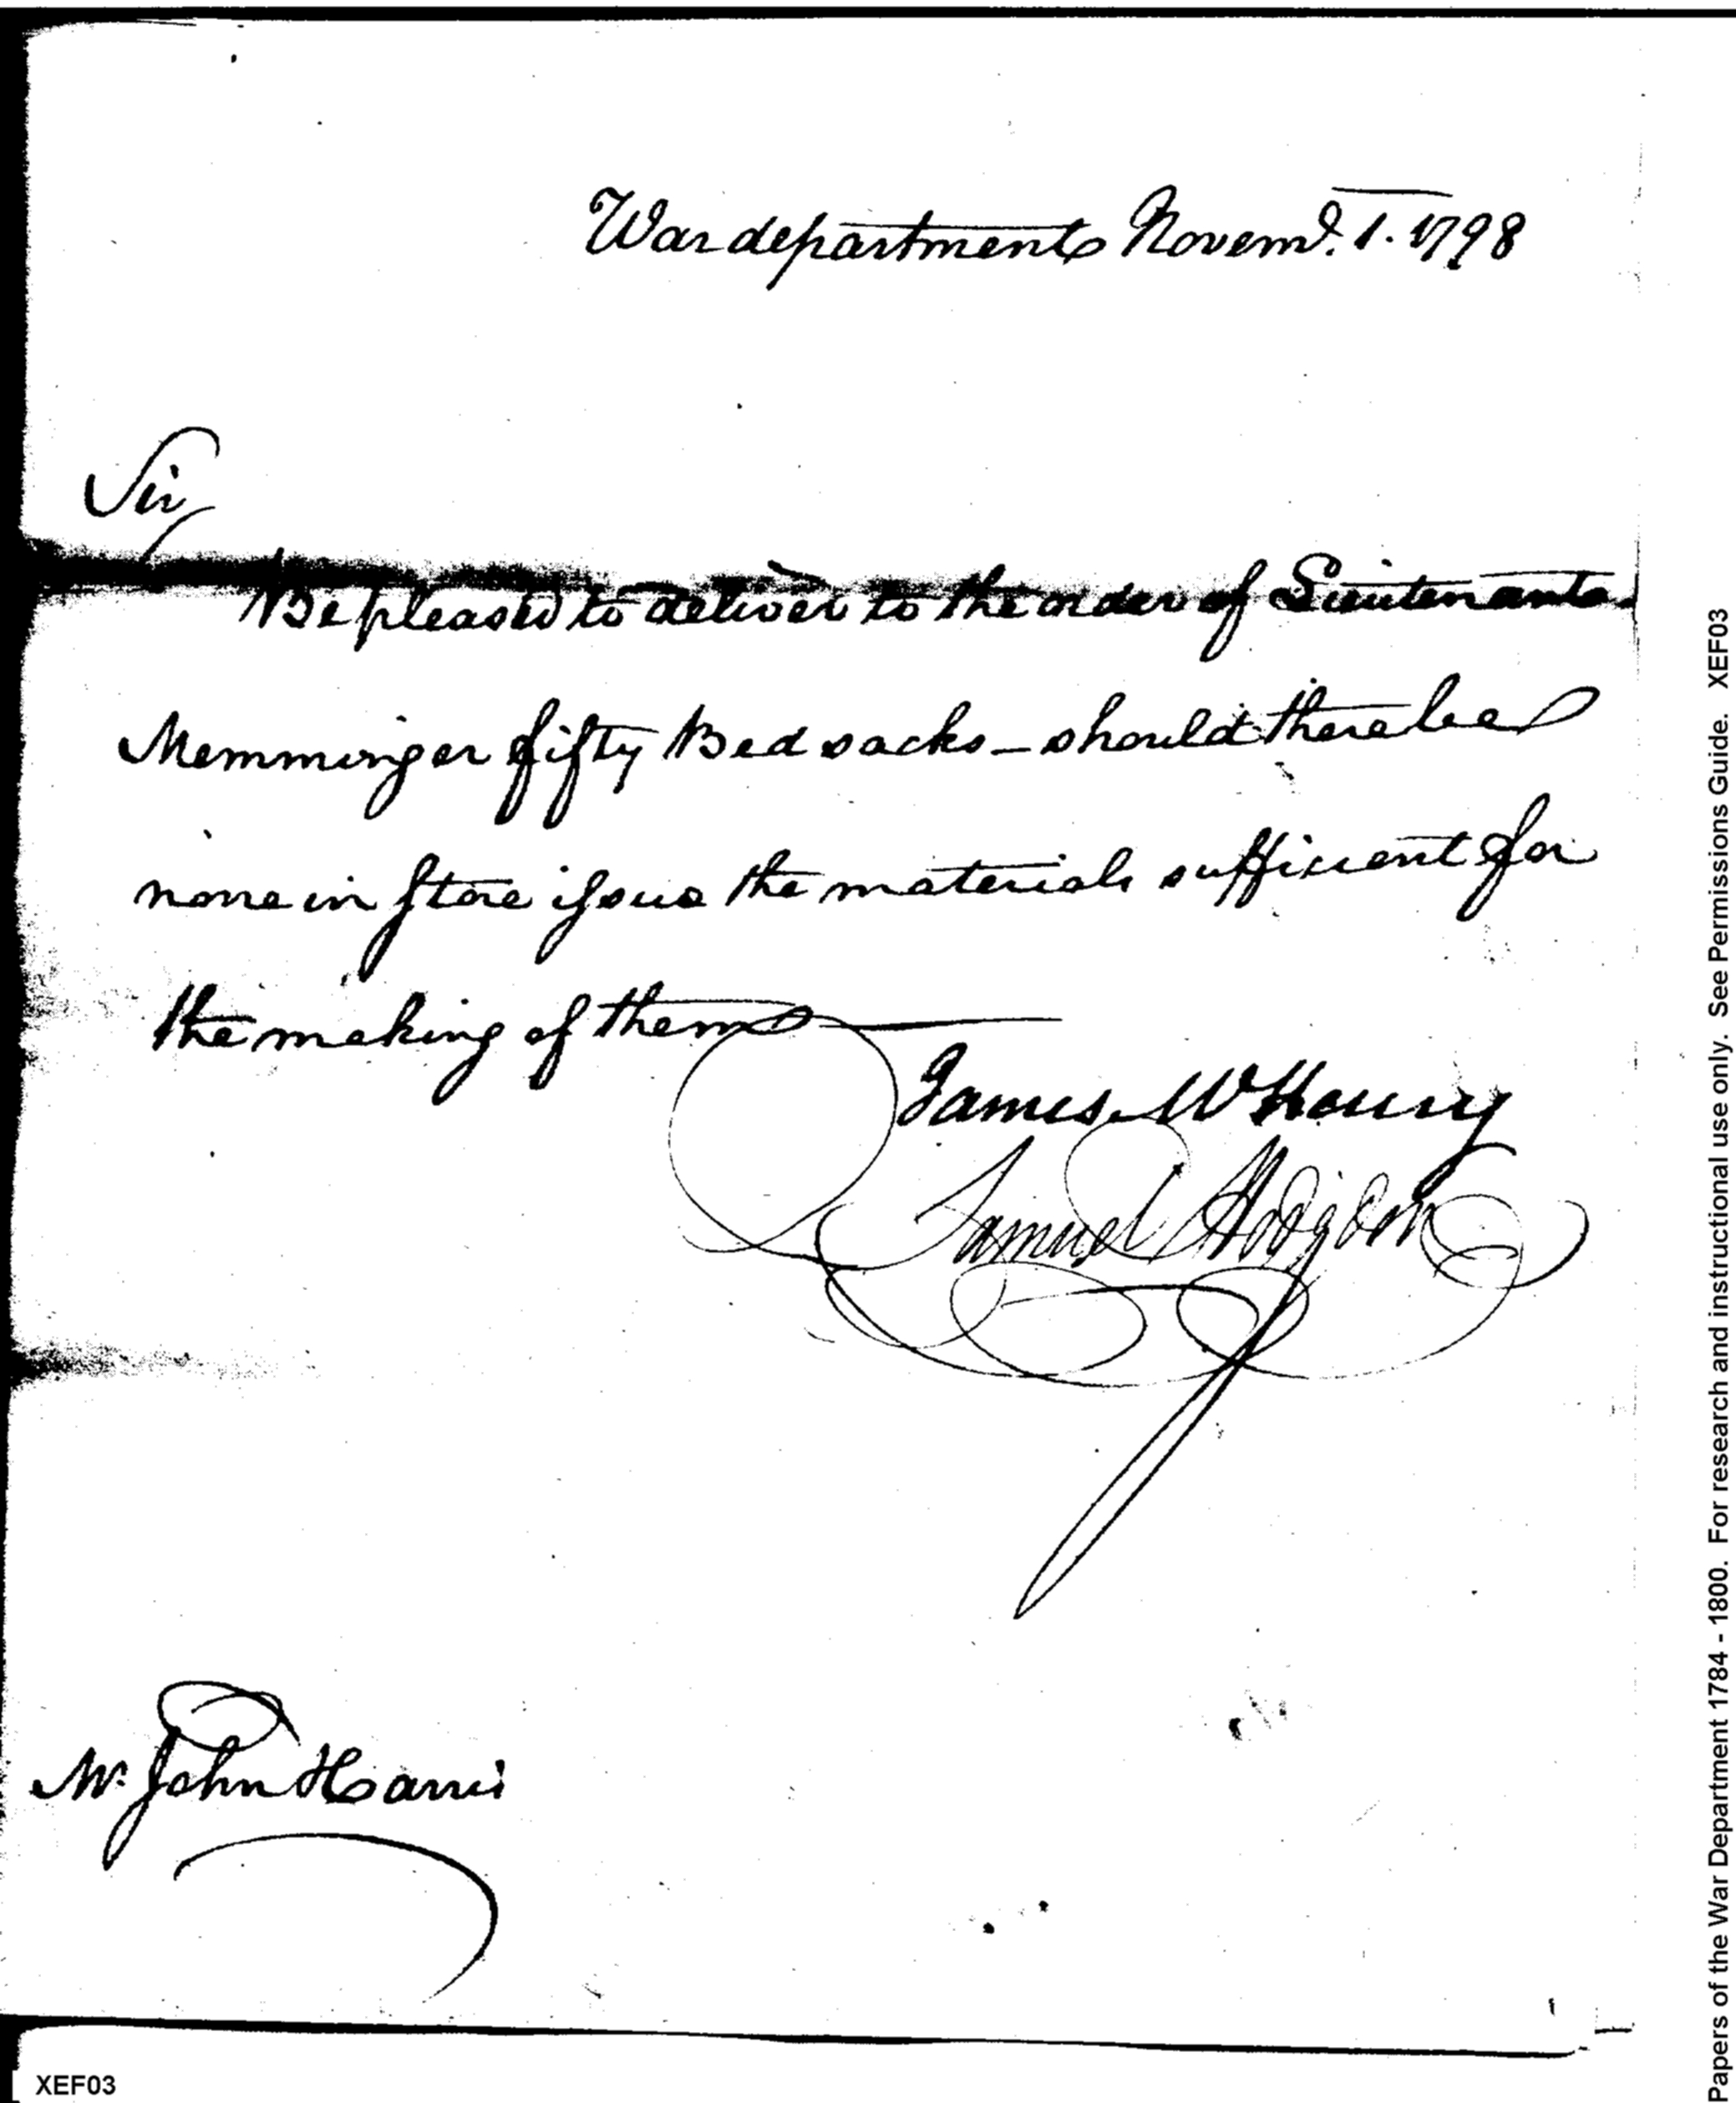 War department Novemr. 1. 1798
Sir,
Be pleased to deliver to the order of Lieutenant
Memminger fifty Bed sacks – should there be
none in store issue the materials sufficient for
the making of them
James McHenry
Samuel Hodgdon
Mr. John Harris
XEF03
Papers of the War Department 1784 - 1800. For research and instructional use only. See Permissions Guide. XEF03